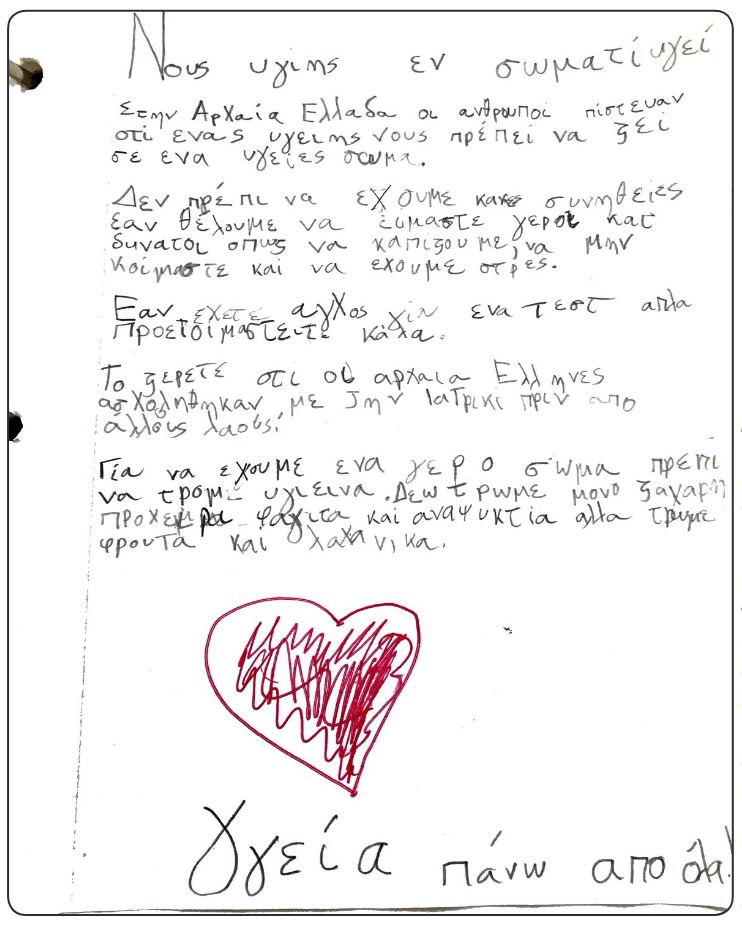 Νους υγίης εν σωματί υγεί
Στην Αρχαία Ελλαδα οι ανθρωποι πίστευαν
οτί ενας υγειης νους πρέπεί να ζεί
σε ενα υγείες σωμα.
Δεν πρέπι να εχουμε κακε συνηθείες
εαν θέλουμε να είμαστε γεροι και
δυνατοι οπως να καπιζουμε, να μην
κοίμαστε και να εχουμε στρες.
Εαν εχετε αγχος για ενα τεστ απλα
Προετοίμαστειτε καλα.
Το ξερετε οτι οι αρχαια Ελληνες
ασχοληθηκαν με την Ιατρικι πριν απο
άλλους λαους;
Για να εχουμε ενα γερο σωμα πρεπι
να τρομε υγιεινα. Δεω τρωμε μονο ζαχαρη
προχειρα φαγιτα και αναψυκτία αλλα τρωμε
φρουτα και λαχανικα.
Υγεία πάνω απο όλα!